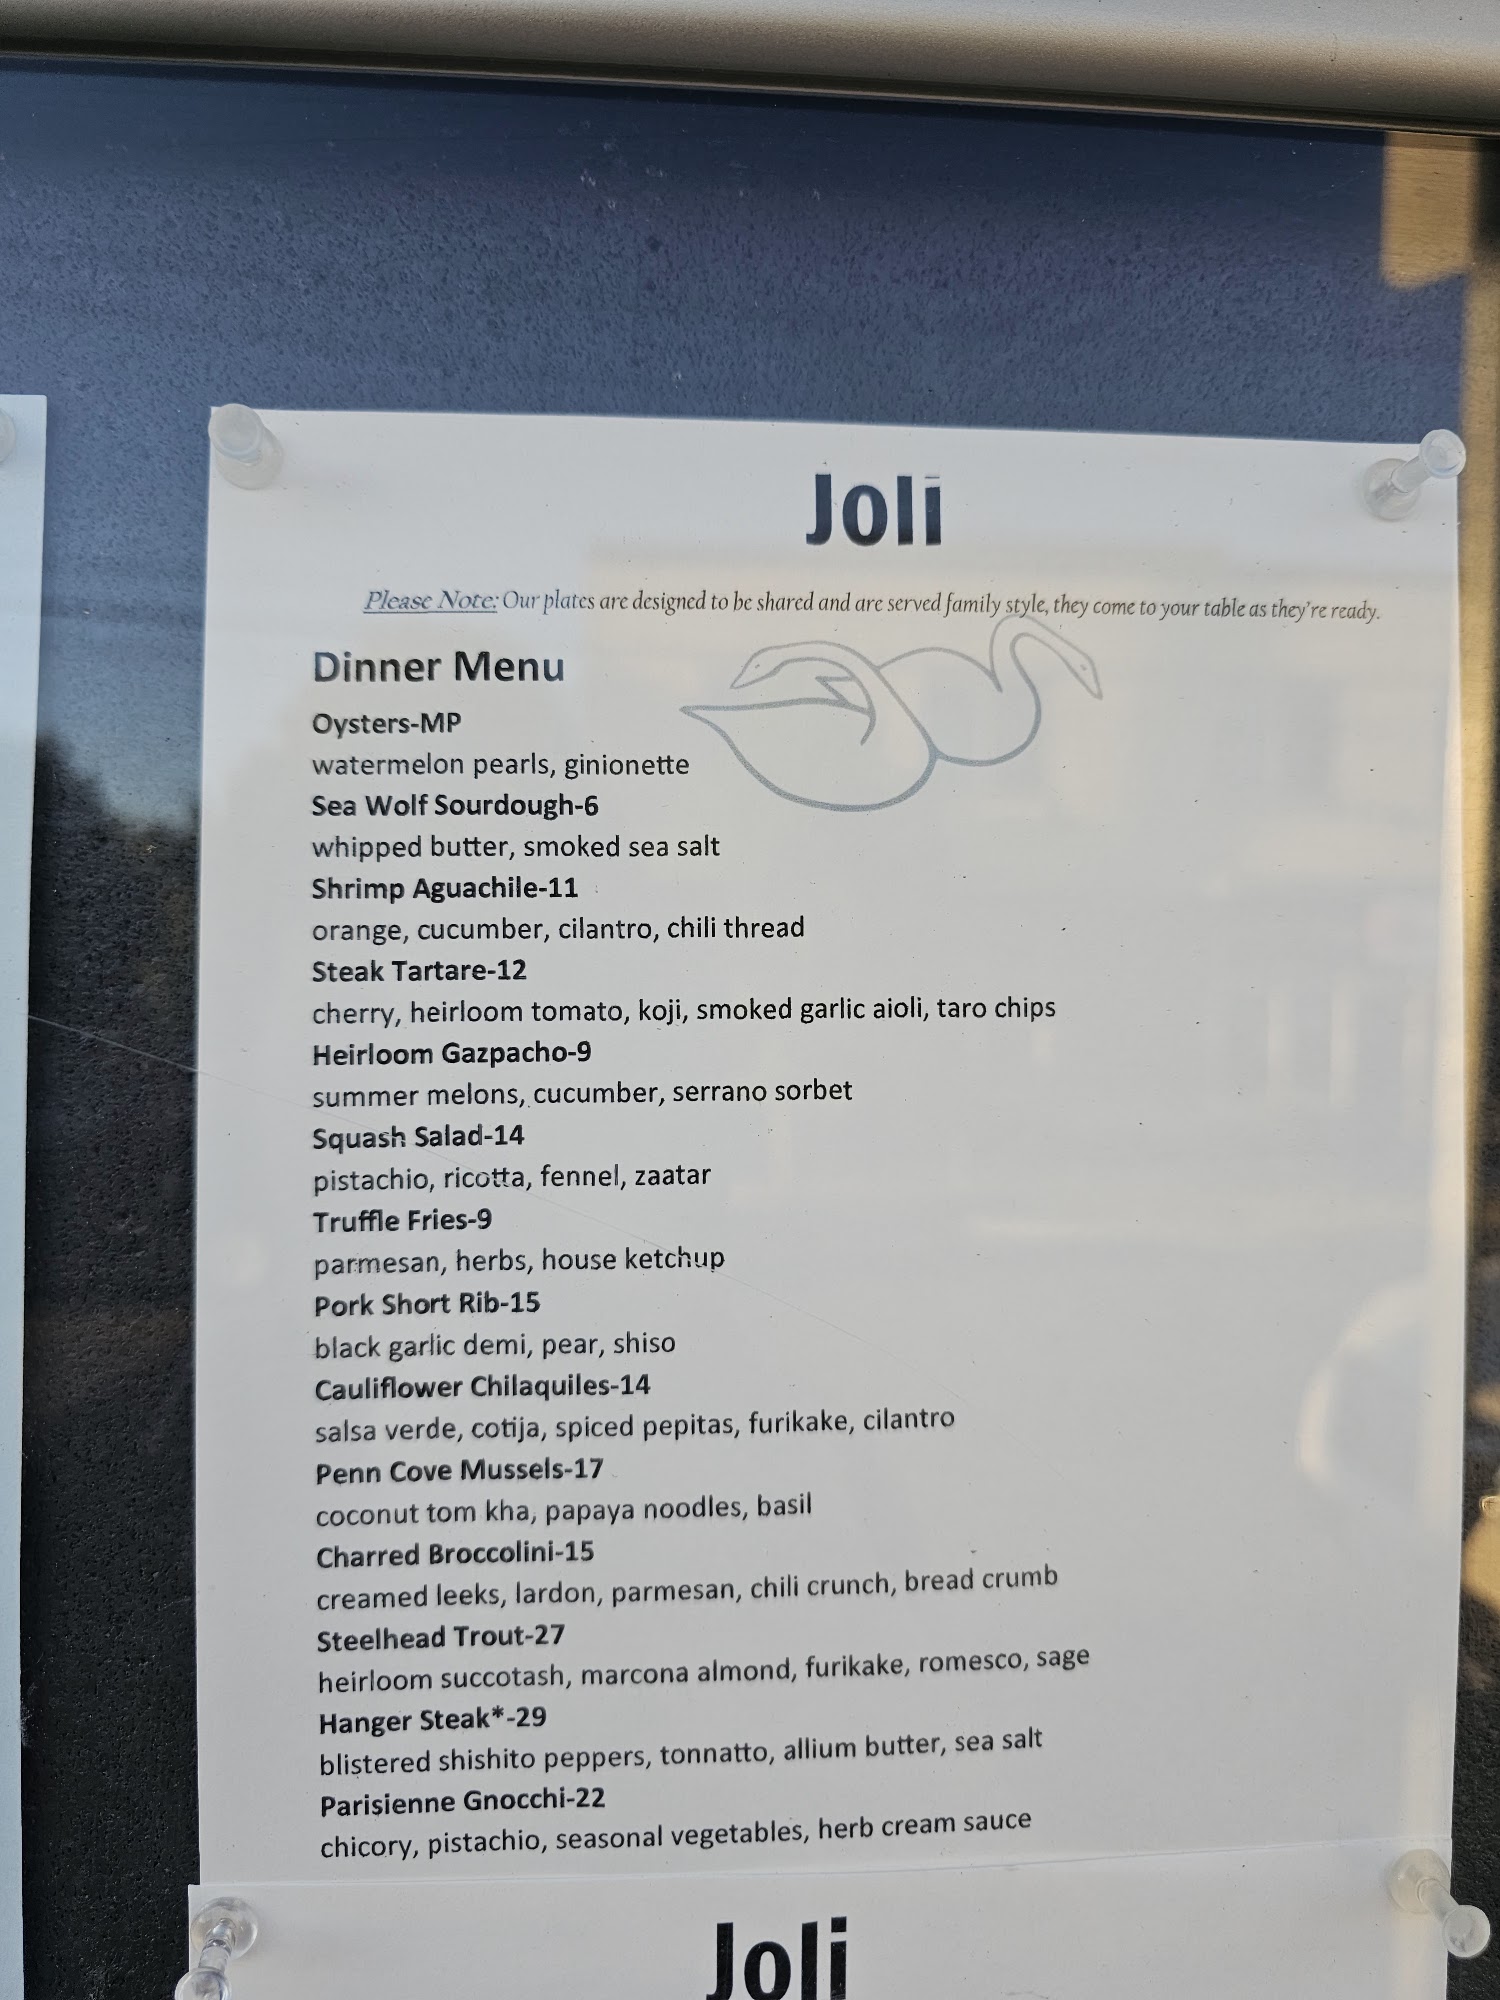 Joli
Please Note: Our plates are designed to be shared and are served family style, they come to your table as they're ready.
Dinner Menu
Oysters-MP
watermelon pearls, ginionette
Sea Wolf Sourdough-6
whipped butter, smoked sea salt
Shrimp Aguachile-11
orange, cucumber, cilantro, chili thread
Steak Tartare-12
cherry, heirloom tomato, koji, smoked garlic aioli, taro chips
Heirloom Gazpacho-9
summer melons, cucumber, serrano sorbet
Squash Salad-14
pistachio, ricotta, fennel, zaatar
Truffle Fries-9
parmesan, herbs, house ketchup
Pork Short Rib-15
black garlic demi, pear, shiso
Cauliflower Chilaquiles-14
salsa verde, cotija, spiced pepitas, furikake, cilantro
Penn Cove Mussels-17
coconut tom kha, papaya noodles, basil
Charred Broccolini-15
creamed leeks, lardon, parmesan, chili crunch, bread crumb
Steelhead Trout-27
heirloom succotash, marcona almond, furikake, romesco, sage
Hanger Steak*-29
blistered shishito peppers, tonnatto, allium butter, sea salt
Parisienne Gnocchi-22
chicory, pistachio, seasonal vegetables, herb cream sauce
Joli